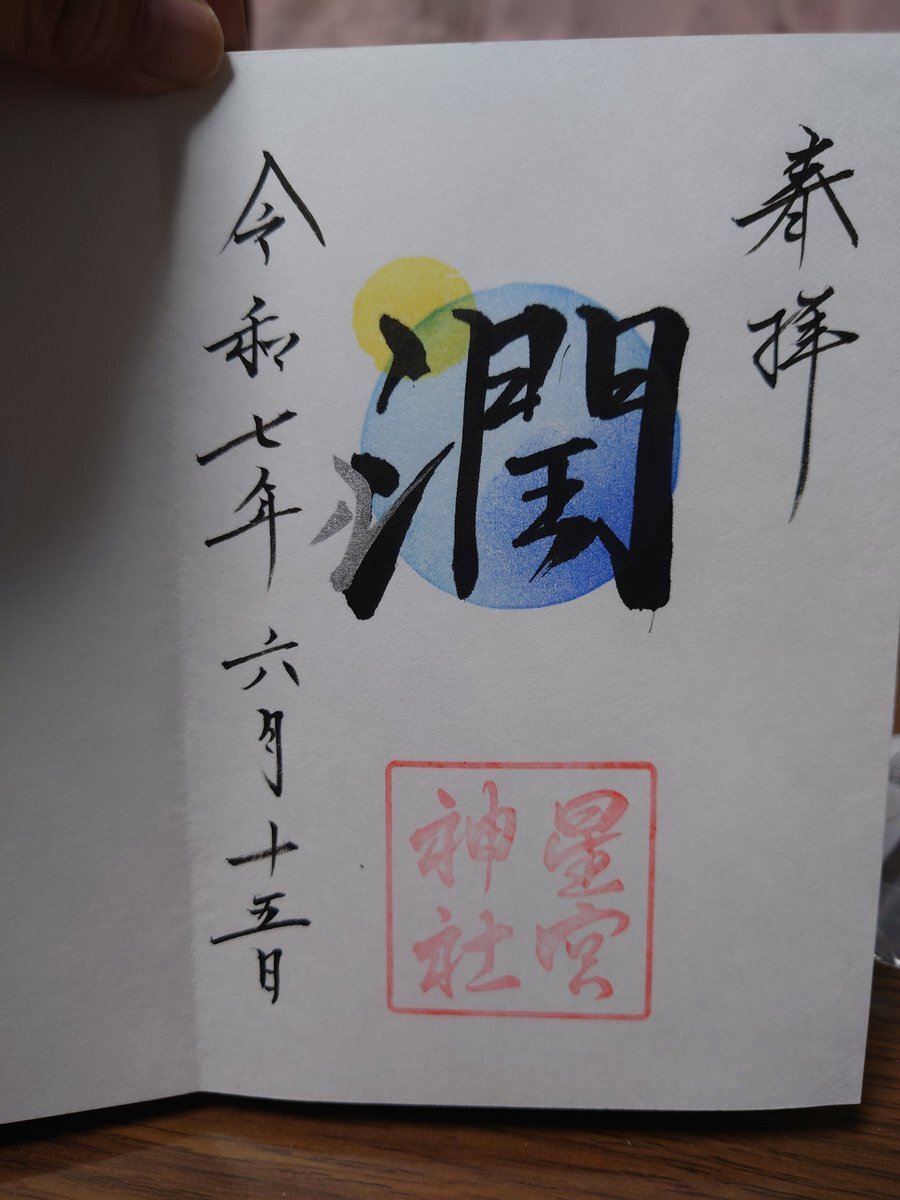 奉拝
潤
星宮
神社
令和七年 六月十五日